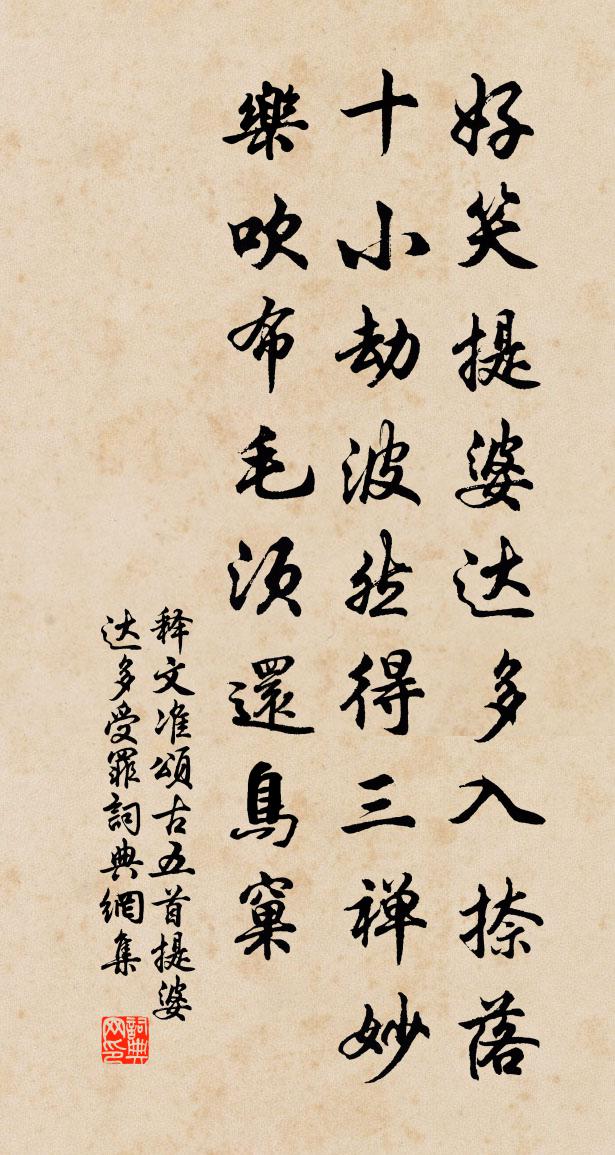 好笑提婆达多入捺落
十小劫波然得三禅妙
樂吹布毛须還鳥窠
释文准頌古五首提婆
达多受罪詞典網集
詞典网印